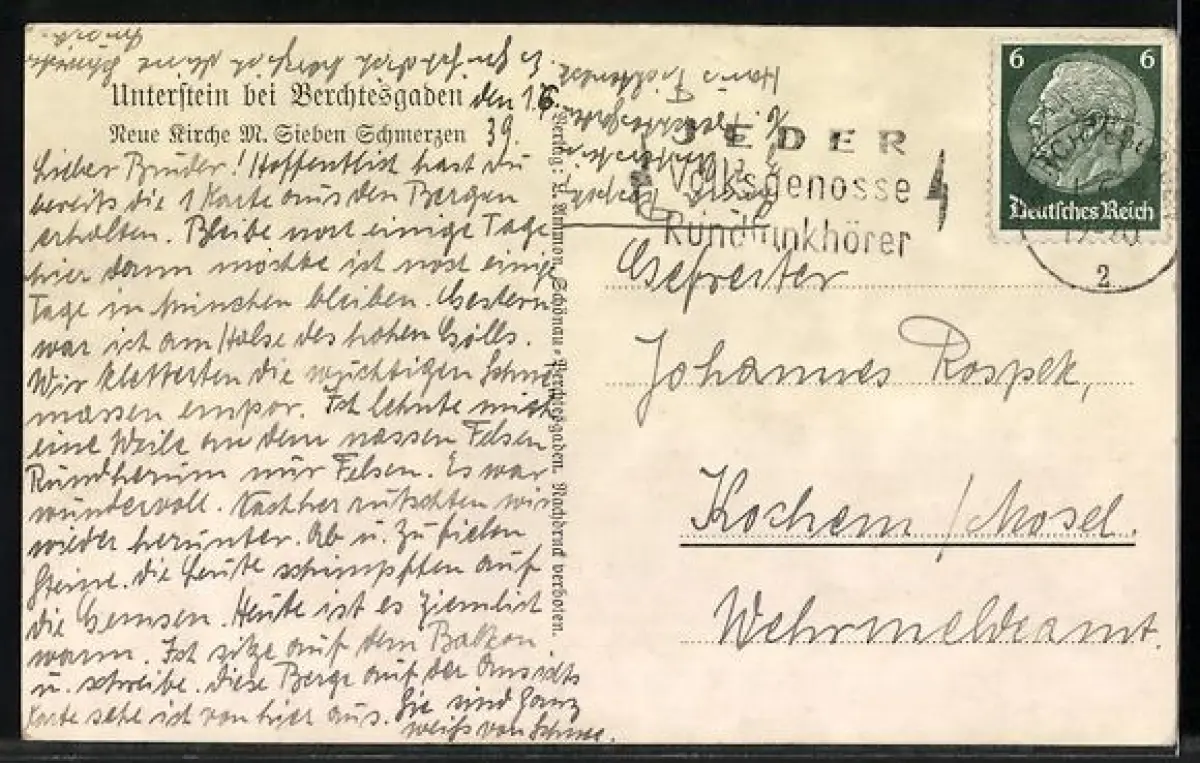 Unterstein bei Berchtesgaden den 1.6.
Neue Kirche M. Sieben Schmerzen 39.
Lieber Bruder! Hoffentlich hast du
bereits die 1 Karte aus den Bergen
erhalten. Bleibe noch einige Tage
hier dann möchte ich noch einige
Tage in München bleiben. Gestern
war ich am Halse des hohen Gölls.
Wir kletterten die wuchtigen Schnee
massen empor. Ich lehnte mich
eine Weile an dem nassen Felsen
Rundherum nur Felsen. Es war
wundervoll. Nachher rutschten wir
wieder herunter. Ab u. zu fielen
Steine. die Leute schimpften auf
die Gemsen. Heute ist es ziemlich
warm. Ich sitze auf dem Balkon
u. schreibe. diese Berge auf der Ansichts
Karte sehe ich von hier aus. Sie sind ganz
weiß von Schnee.
Verlag: Ammon, Schönau-Berchtesgaden. Nachdruck verboten.
JEDER
Volksgenosse
Rundfunkhörer
6 6
Deutsches Reich
2
Gefreiter
Johannes Rospek,
Kochem / Mosel.
Wehrmeldeamt.